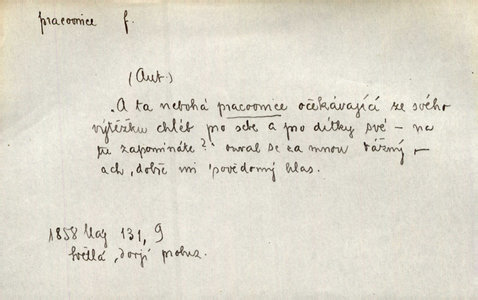 pracovnice f.
(Aut.)
„A ta nebohá pracovnice očekávající ze svého
výtěžku chléb pro sebe a pro dítky své – na
tu zapomínáte?" ozval se za mnou vážný –
ach, dobře mi povědomý hlas.
1858 Máj 131, 9
Světlá, Dvojí probuz.